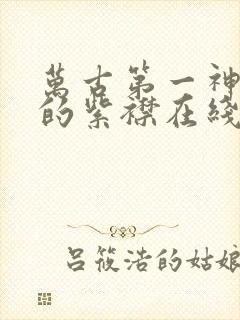 萬古第一神
的紫襟在綫
吕筱浩的姑娘